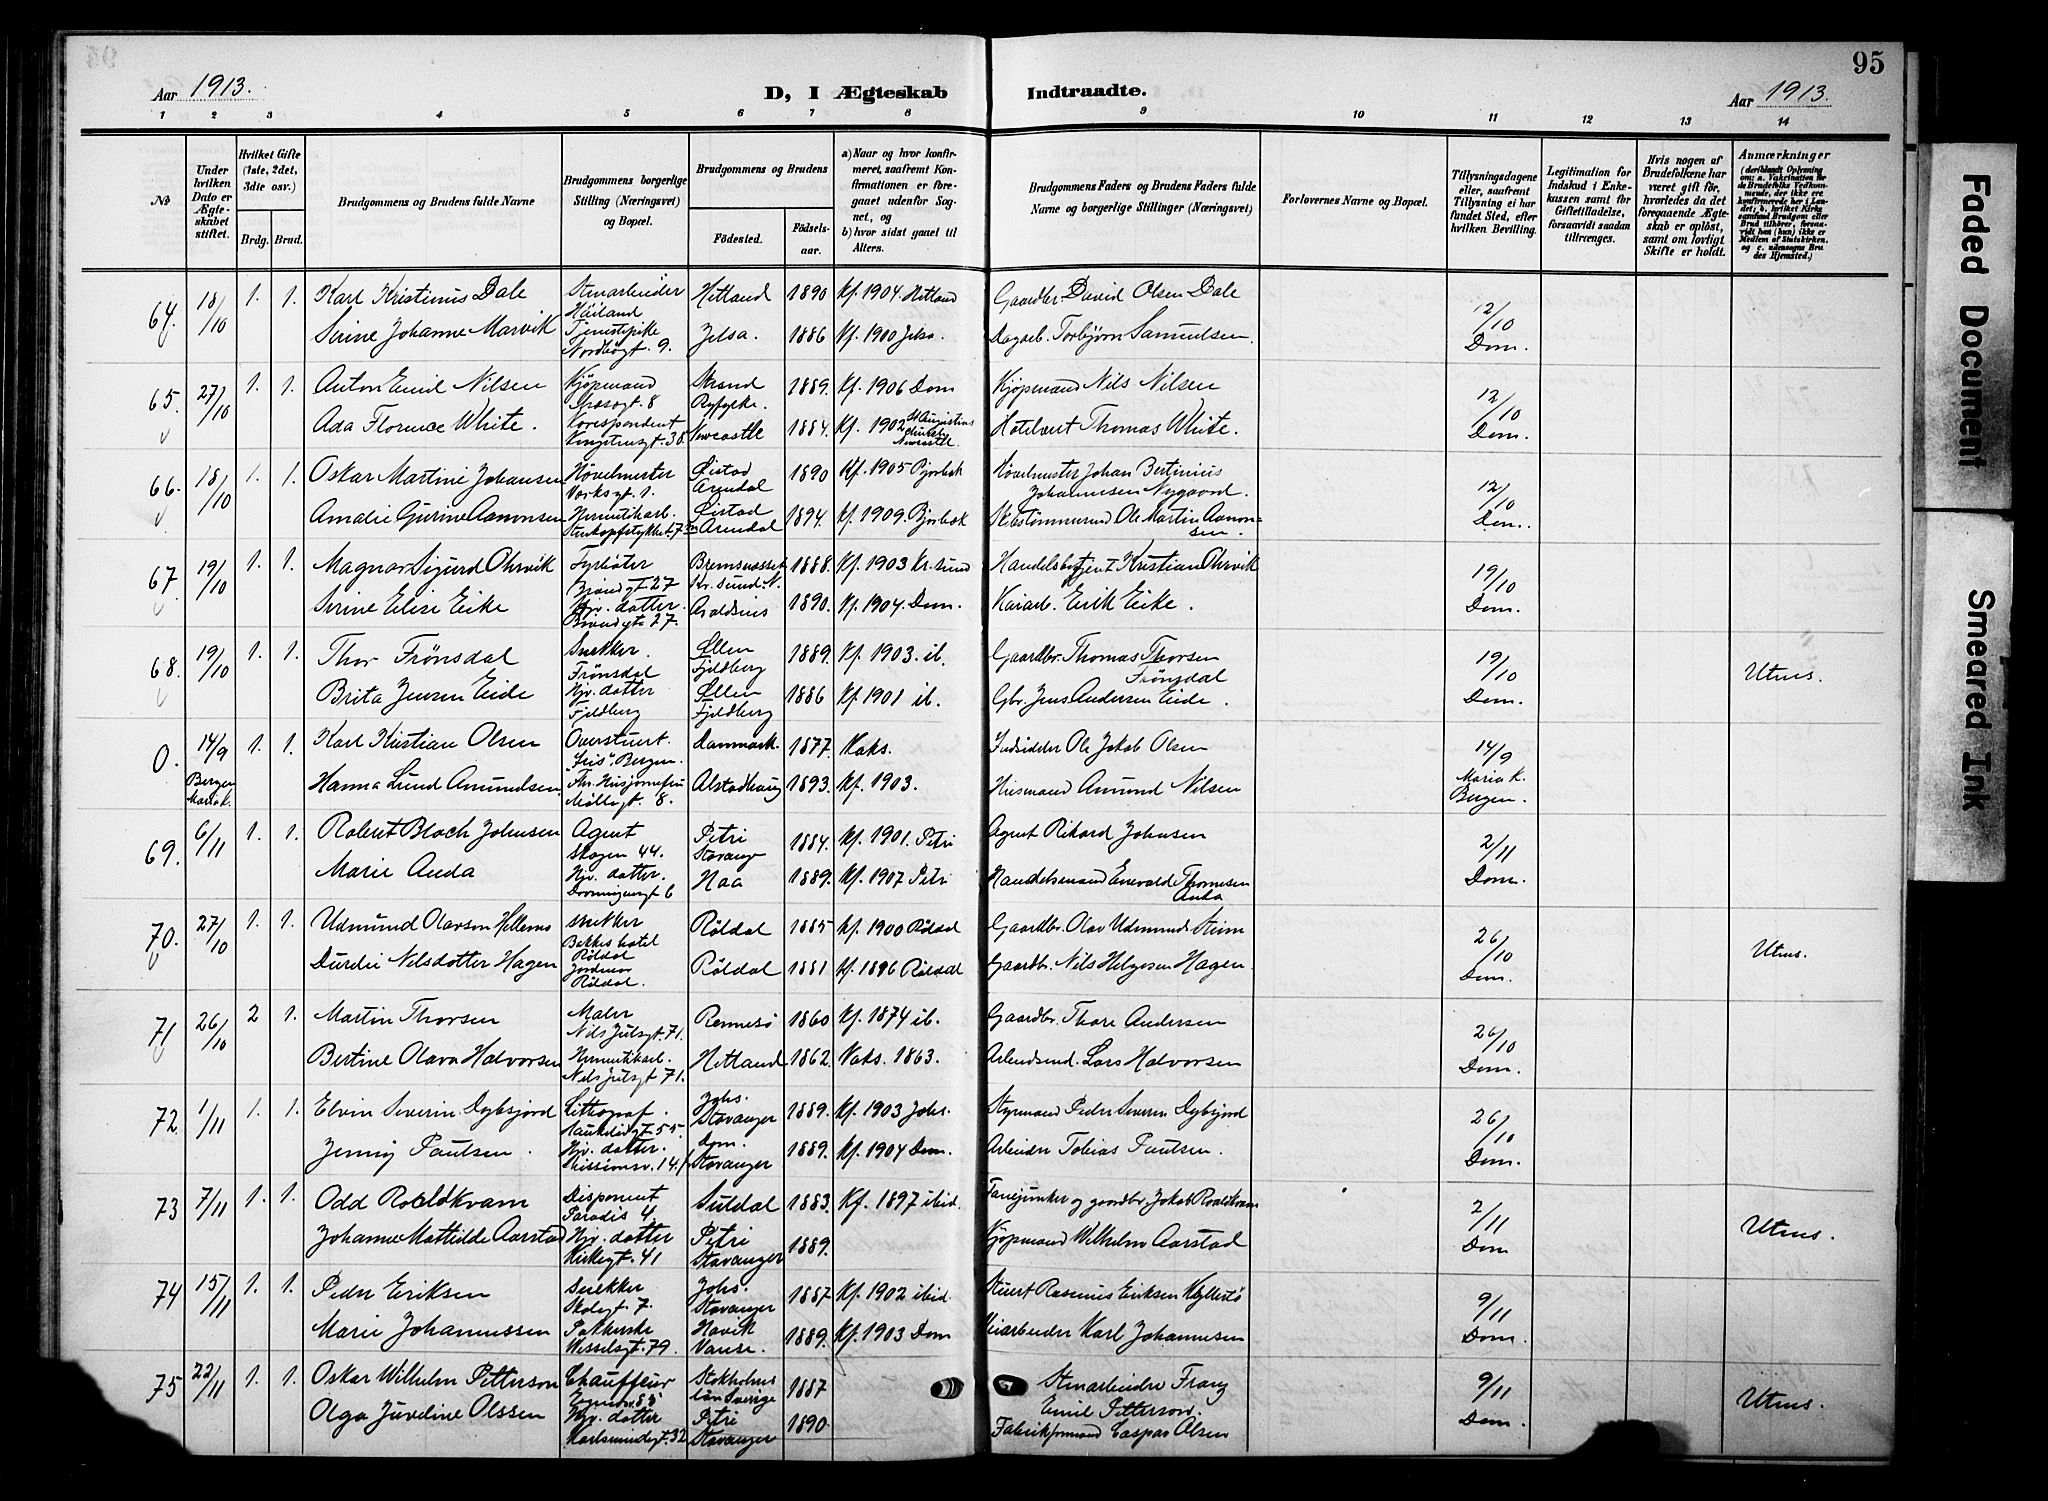 95
Aar 1913.
D, I Ægteskab Indtraadte.
Aar 1913.
1 2 3 4 5 6 7 8 9 10 11 12 13 14
№
Under hvilken Dato er Ægteskabet stiftet.
Hvilket Gifte (1ste, 2det, 3die osv.)
Brdg. Brud.
Brudgommens og Brudens fulde Navne
Brudgommens borgerlige Stilling (Næringsvei) og Bopæl.
Brudgommens og Brudens
Fødested.
Fødselsaar.
a) Naar og hvor konfirmeret, saafremt Konfirmationen er foregaaet udenfor Sognet, og
b) hvor sidst gaaet til Alters.
Brudgommens Faders og Brudens Faders fulde Navne og borgerlige Stillinger (Næringsvei)
Forlovernes Navne og Bopæl.
Tillysningsdagene eller, saafremt Tillysning ei har fundet Sted, efter hvilken Bevilling.
Legitimation for Indskud i Enkekassen samt for Giftetilladelse, forsaavidt saadan tiltrænges.
Hvis nogen af Brudefolkene har været gift før, hvorledes da det foregaaende Ægteskab er opløst, samt om lovligt Skifte er holdt.
Anmærkninger
64. 18/10 1. 1. Karl Kristinus Dale Stenarbeider Hetland 1890 Kf. 1904. Hetland Gaardbr. David Olsen Dale 12/10 Dom.
Serine Johanne Marvik Tjenestepike Jelsa. 1886 Kf. 1900 Jelsa. Dagarb. Torbjørn Samuelsen.
65. 27/10 1. 1. Anton Emil Nilsen Kjøpmand Strand Ryfylke. 1889. Kf. 1906 Dom Kjøpmand Nils Nilsen 12/10 Dom.
Ada Florence White. Korespondent Kongensgt. 38 Newcastle 1884. Kf. 1902 St Augustins Church Newcastle. Hotelvert Thomas White.
66. 18/10 1. 1. Oskar Martini Johansen Høvelmester Øistad Arendal 1890 Kf. 1905 Bjorbæk Høvelmester Johan Bertinius Johannesen Nygaard. 12/10 Dom.
Amalie Gurine Aanonsen Hermetikarb. Øistad Arendal 1894. Kf. 1909. Bjorbæk Skibstømmermd Ole Martin Aanonsen.
67. 19/10 1. 1. Magnar Sigurd Ohrvik Fyrbøter Bremsnesset Kr. sund N. 1888. Kf. 1903 Kr. sund Handelsbetjent Kristian Ohrvik 19/10 Dom.
Serine Elise Eike Hjv. datter. 1890. Kf. 1904. Dom. Kaiarb. Erik Eike.
68. 19/10 1. 1. Thor Frønsdal Snekker. Frønsdal Ølen Fjeldberg 1889. Kf. 1903. ib. Gaardbr. Thomas Thorsen Frønsdal 19/10 Dom. Utms.
Brita Jensen Eide Hjv. datter Fjeldberg Ølen Fjeldberg 1886 Kf. 1901 ib. Gbr. Jens Andersen Eide.
0. 14/9 Bergen Mariak. 1. 1. Karl Kristian Olsen Overstuert. "Iris", Bergen. Danmark. 1877. Vaks. Indsidder Ole Jakob Olsen 14/9 Mariak. Bergen.
Hanna Lund Amundsen. Møllegt. 8. Alstadhaug 1893. Kf. 1903. Husmand Amund Nilsen
69. 6/11 1. 1. Robert Bloch Johnsen Agent Skagen 44. Petri Stavanger 1884. Kf. 1901. Petri Agent Rikard Johnsen 2/11 Dom.
Marie Anda Hjv. datter. Dronningensgt 6 Haa 1889. Kf. 1907 Petri Handelsmand Enevalde Thomesen Anda
70. 27/10 1. 1. Udmund Olavson Hellemo Snekker Bakkes hotel Røldal Røldal 1885 Kf. 1900 Røldal Gaardbr. Olav Udmunds Steim 26/10 Dom. Utms.
Durdei Nilsdotter Hagen Jordmor Røldal. Røldal 1881 Kf. 1896 Røldal Gaardbr. Nils Helgesen Hagen.
71. 26/10 2 1. Martin Thorsen Maler Nils Julsgt. 71. Rennesø 1860 Kf. 1874 ib. Gaardbr. Thore Andersen 26/10 Dom.
Bertine Olava Halvorsen Hermetikarb. Nils Julsgt 71. Hetland 1862. Vaks. 1863. Arbeidsmd. Lars Halvorsen
72. 1/11 1. 1. Elvin Severin Dybsjord Lithograf. Haukeligt 55. Johs. Stavanger 1889. Kf. 1903 Johs. Styrmand Peder Severin Dybsjord 26/10 Dom.
Jenny Paulsen. Hjv. datter. Missionsv. 14. Dom. Stavanger 1889. Kf. 1904 Dom. Arbeider Tobias Paulsen.
73 7/11 1. 1. Odd Roaldkvam Disponent Paradis 4. Suldal 1883. Kf. 1897 ibid. Fanejunker og gaardbr. Jakob Roaldkvam 2/11 Dom Utms.
Johanne Mathilde Aarstad Hjv. datter Kirkegt. 41 Petri Stavanger 1889. Kjøpmand Wilhelm Aarstad
74 15/11 1. 1. Peder Eriksen Snekker Skolegt. 7. Johs. Stavanger 1887 Kf. 1902 ibid. Stuert Rasmus Eriksen Kyllestø 9/11 Dom.
Marie Johannessen Pakkerske Wesselsgt. 79. Havik Vanse. 1889. Kf. 1903 Dom Veiarbeider Karl Johannesen
75 22/11 1. 1. Oskar Wilhelm Pettersson Chauffeur Stokholms län Sverige 1887 Stenarbeider Franz Emil Petterson. 9/11 Dom. Utms.
Olga Juveline Olssen Hjv. datter Karlsmindegt. 32 Petri Stavanger 1890. Fabrikformand Caspar Olsen
Faded Document
Smeared Ink